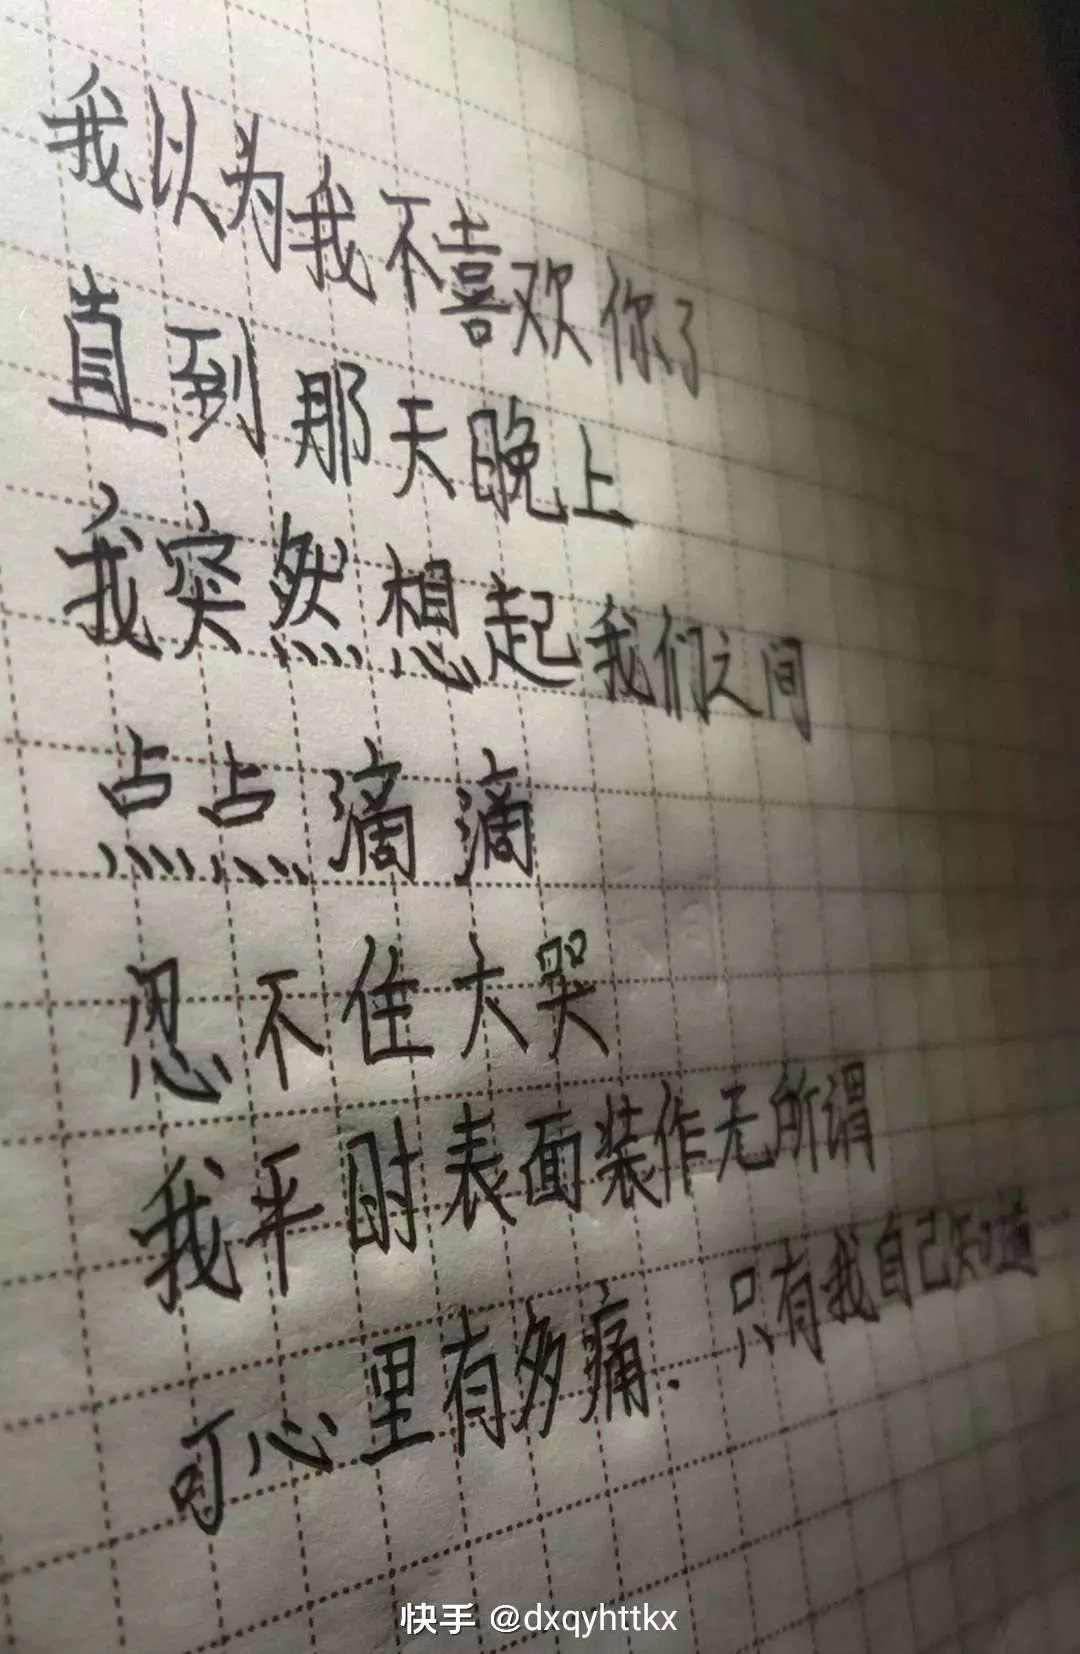 我以为我不喜欢你了
直到那天晚上
我突然想起我们之间
点点滴滴
忍不住大哭
我平时表面装作无所谓
可心里有多痛.只有我自己知道
快手 @dxqyhttkx